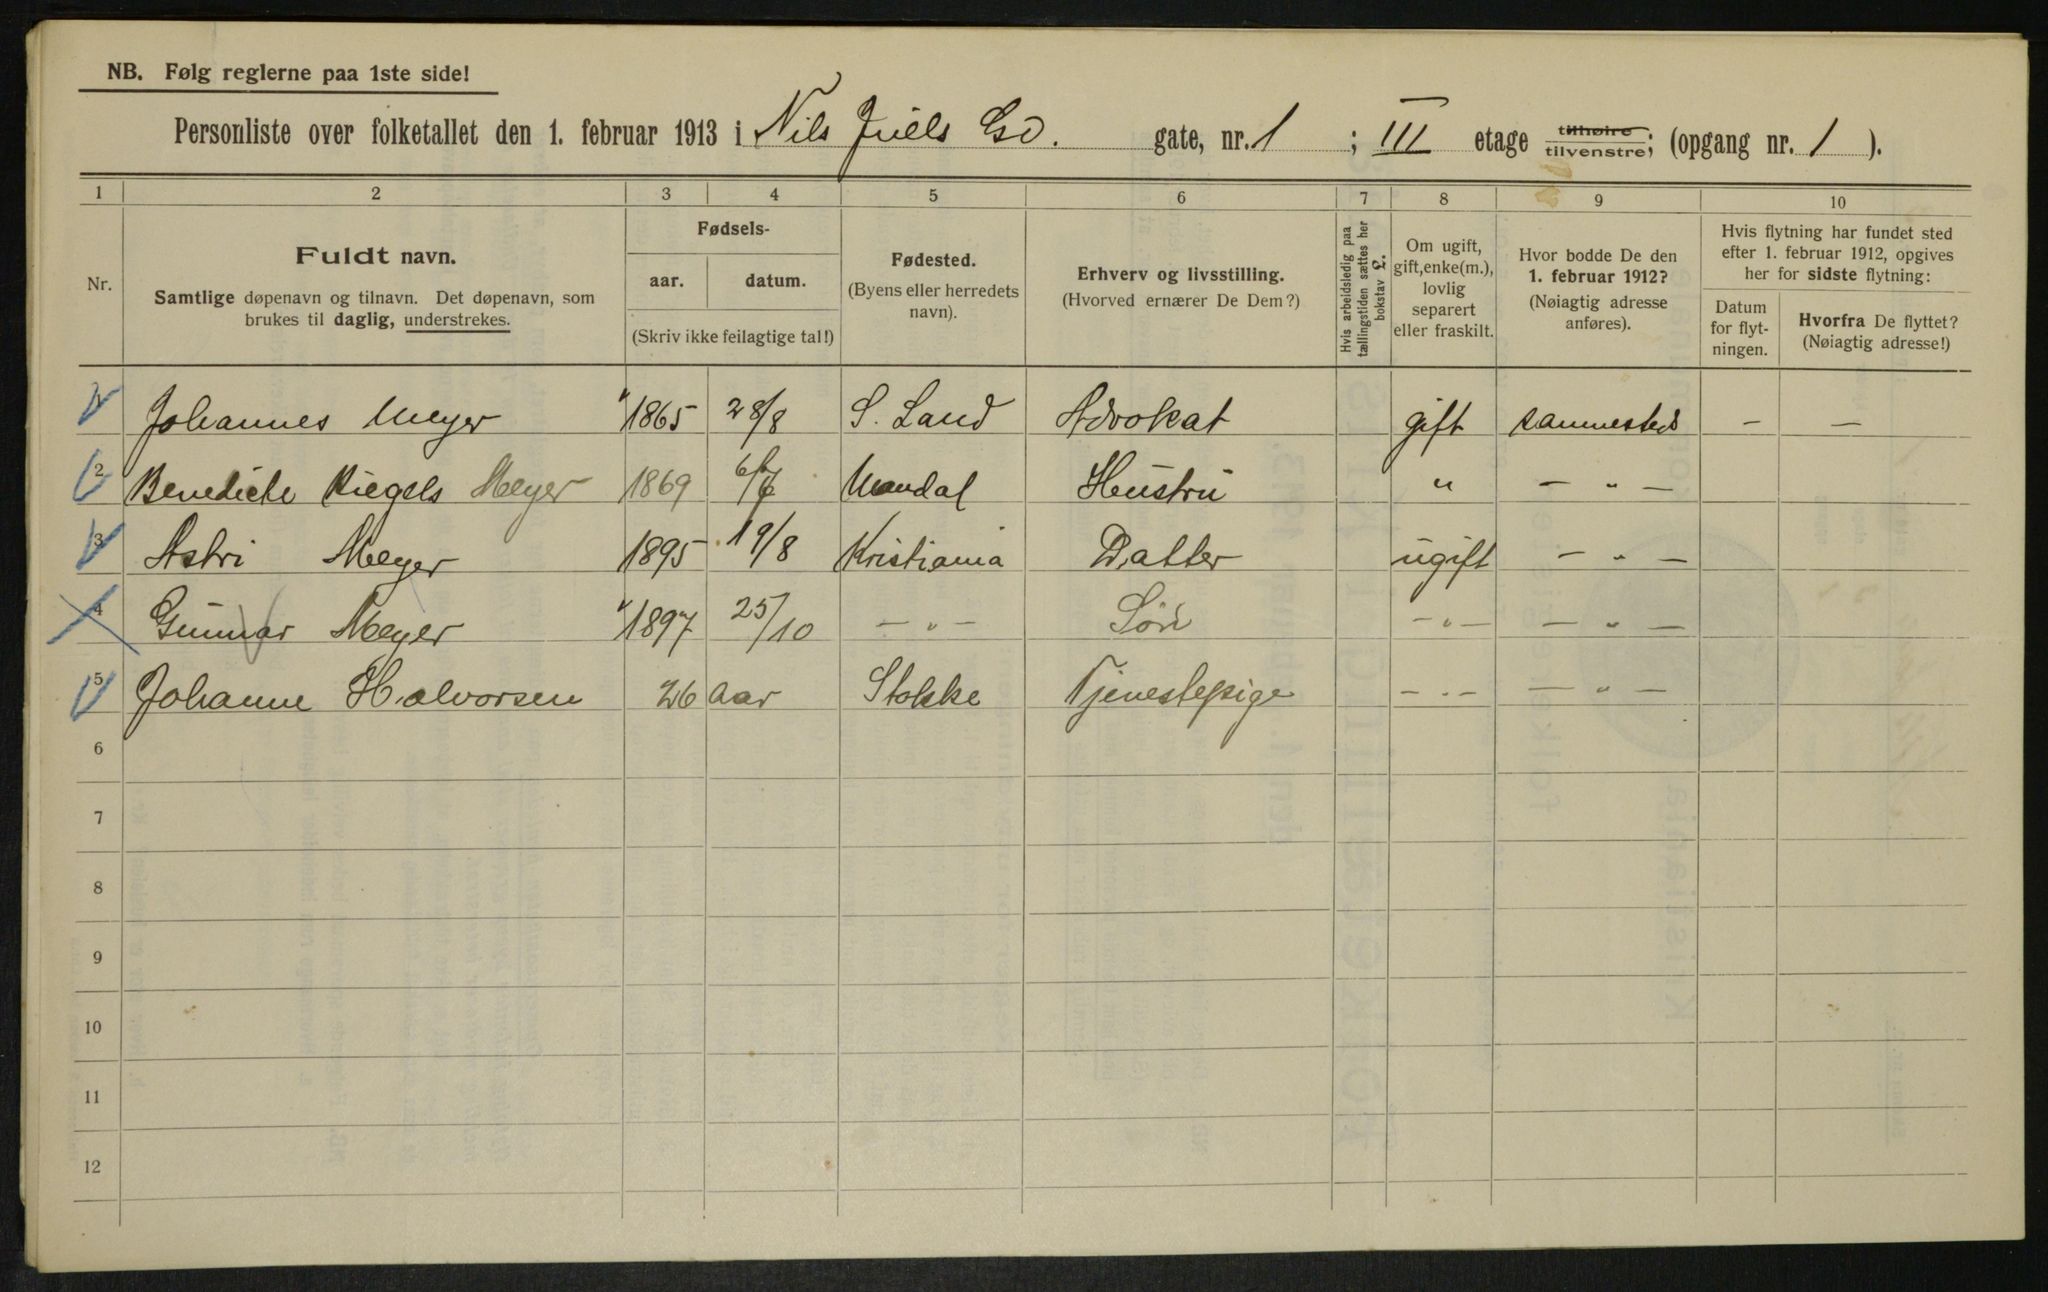 NB. Følg reglerne paa 1ste side!
Personliste over folketallet den 1. februar 1913 i Nils Juels Gd. gate, nr. 1 ; III etage tilhøire tilvenstre; (opgang nr. 1 ).
1 2 3 4 5 6 7 8 9 10
Nr.
Fuldt navn.
Samtlige døpenavn og tilnavn. Det døpenavn, som
brukes til daglig, understrekes.
Fødsels-
aar. datum.
(Skriv ikke feilagtige tal!)
Fødested.
(Byens eller herredets
navn).
Erhverv og livsstilling.
(Hvorved ernærer De Dem?)
Hvis arbeidsledig paa
tællingstiden sættes her
bokstav L.
Om ugift,
gift, enke(m.),
lovlig
separert
eller fraskilt.
Hvor bodde De den
1. februar 1912?
(Nøiagtig adresse
anføres).
Hvis flytning har fundet sted
efter 1. februar 1912, opgives
her for sidste flytning:
Datum
for flyt-
ningen.
Hvorfra De flyttet?
(Nøiagtig adresse!)
1 Johannes Meyer 1865 28/8 S. Land Advokat gift sammesteds — —
2 Benedicte Riegels Meyer 1869 Mandal Hustru " — " —
3 Astri Meyer 1895 19/8 Kristiania Datter ugift — " —
4 Gunnar Meyer 1897 25/10 — " — Søn — " — — " —
5 Johanne Halvorsen 26 aar Stokke Tjenestepige — " — — " —
6
7
8
9
10
11
12